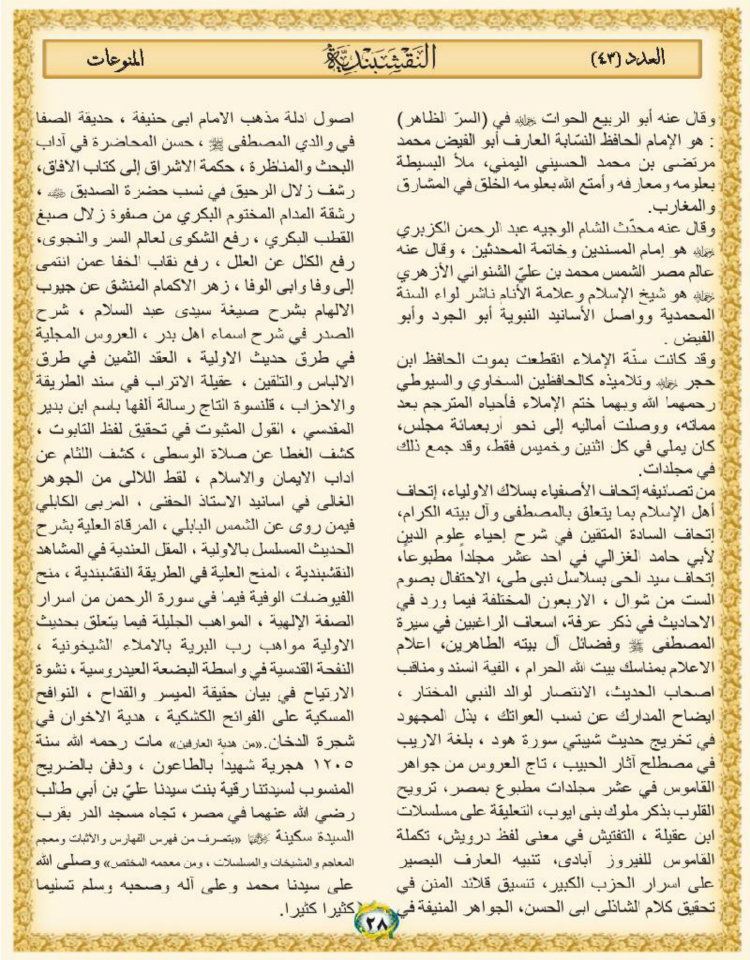 العدد (٤٣)
النقشبندية
المنوعات
وقال عنه أبو الربيع الحوات رحمه الله في (السرّ الظاهر)
: هو الإمام الحافظ النسّابة العارف أبو الفيض محمد
مرتضى بن محمد الحسيني اليمني، ملأ البسيطة
بعلومه ومعارفه وأمتع الله بعلومه الخلق في المشارق
والمغارب.
وقال عنه محدّث الشام الوجيه عبد الرحمن الكزبري
رحمه الله هو إمام المسندين وخاتمة المحدثين ، وقال عنه
عالم مصر الشمس محمد بن عليّ الشنواني الأزهري
رحمه الله هو شيخ الإسلام وعلامة الأنام ناشر لواء السنة
المحمدية وواصل الأسانيد النبوية أبو الجود وأبو
الفيض .
وقد كانت سنّة الإملاء انقطعت بموت الحافظ ابن
حجر رحمه الله وتلاميذه كالحافظين السخاوي والسيوطي
رحمهما الله وبهما ختم الإملاء فأحياه المترجم بعد
مماته، ووصلت أماليه إلى نحو أربعمائة مجلس،
كان يملي في كل اثنين وخميس فقط، وقد جمع ذلك
في مجلدات.
من تصانيفه إتحاف الأصفياء بسلاك الاولياء، إتحاف
أهل الإسلام بما يتعلق بالمصطفى وآل بيته الكرام،
إتحاف السادة المتقين في شرح إحياء علوم الدين
لأبي حامد الغزالي في احد عشر مجلداً مطبوعا،
إتحاف سيد الحى بسلاسل نبى طى، الاحتفال بصوم
الست من شوال ، الاربعون المختلفة فيما ورد في
الاحاديث في ذكر عرفة، اسعاف الراغبين في سيرة
المصطفى ﷺ وفضائل آل بيته الطاهرين، اعلام
الاعلام بمناسك بيت الله الحرام ، الفية السند ومناقب
اصحاب الحديث، الانتصار لوالد النبي المختار ،
ايضاح المدارك عن نسب العواتك ، بذل المجهود
في تخريج حديث شيبتي سورة هود ، بلغة الاريب
في مصطلح آثار الحبيب ، تاج العروس من جواهر
القاموس في عشر مجلدات مطبوع بمصر، ترويح
القلوب بذكر ملوك بنى ايوب، التعليقة على مسلسلات
ابن عقيلة ، التفتيش في معنى لفظ درويش، تكملة
القاموس للفيروز آبادى، تنبيه العارف البصير
على اسرار الحزب الكبير، تنسيق قلائد المنن في
تحقيق كلام الشاذلى ابى الحسن، الجواهر المنيفة في
اصول ادلة مذهب الامام ابى حنيفة ، حديقة الصفا
في والدي المصطفى ﷺ ، حسن المحاضرة في آداب
البحث والمناظرة ، حكمة الاشراق إلى كتاب الافاق،
رشف زلال الرحيق في نسب حضرة الصديق ،
رشقة المدام المختوم البكري من صفوة زلال صبغ
القطب البكري ، رفع الشكوى لعالم السر والنجوى،
رفع الكلل عن العلل ، رفع نقاب الخفا عمن انتمى
إلى وفا وابى الوفا ، زهر الاكمام المنشق عن جيوب
الالهام بشرح صيغة سيدى عبد السلام ، شرح
الصدر في شرح اسماء اهل بدر ، العروس المجلية
في طرق حديث الاولية ، العقد الثمين في طرق
الالباس والتلقين ، عقيلة الاتراب في سند الطريقة
والاحزاب ، قلنسوة التاج رسالة ألفها باسم ابن بدير
المقدسي ، القول المثبوت في تحقيق لفظ التابوت ،
كشف الغطا عن صلاة الوسطى ، كشف اللثام عن
اداب الايمان والاسلام ، لقط اللالى من الجوهر
الغالى في اسانيد الاستاذ الحفنى ، المربى الكابلي
فيمن روى عن الشمس البابلي ، المرقاة العلية بشرح
الحديث المسلسل بالاولية ، المقل العندية في المشاهد
النقشبندية ، المنح العلية في الطريقة النقشبندية ، منح
الفيوضات الوفية فيما في سورة الرحمن من اسرار
الصفة الإلهية ، المواهب الجليلة فيما يتعلق بحديث
الاولية مواهب رب البرية بالاملاء الشيخونية ،
النفحة القدسية في واسطة البضعة العيدروسية ، نشوة
الارتياح في بيان حقيقة الميسر والقداح ، النوافح
المسكية على الفوائح الكشكية ، هدية الاخوان في
شجرة الدخان.«من هدية العارفين» مات رحمه الله سنة
١٢٠٥ هجرية شهيداً بالطاعون ، ودفن بالضريح
المنسوب لسيدتنا رقية بنت سيدنا عليّ بن أبي طالب
رضي الله عنهما في مصر، تجاه مسجد الدر بقرب
السيدة سكينة «بتصرف من فهرس الفهارس والأثبات ومعجم
المعاجم والمشيخات والمسلسلات ، ومن معجمه المختص» وصلى الله
على سيدنا محمد وعلى آله وصحبه وسلم تسليما
كثيرا كثيرا.
٢٨